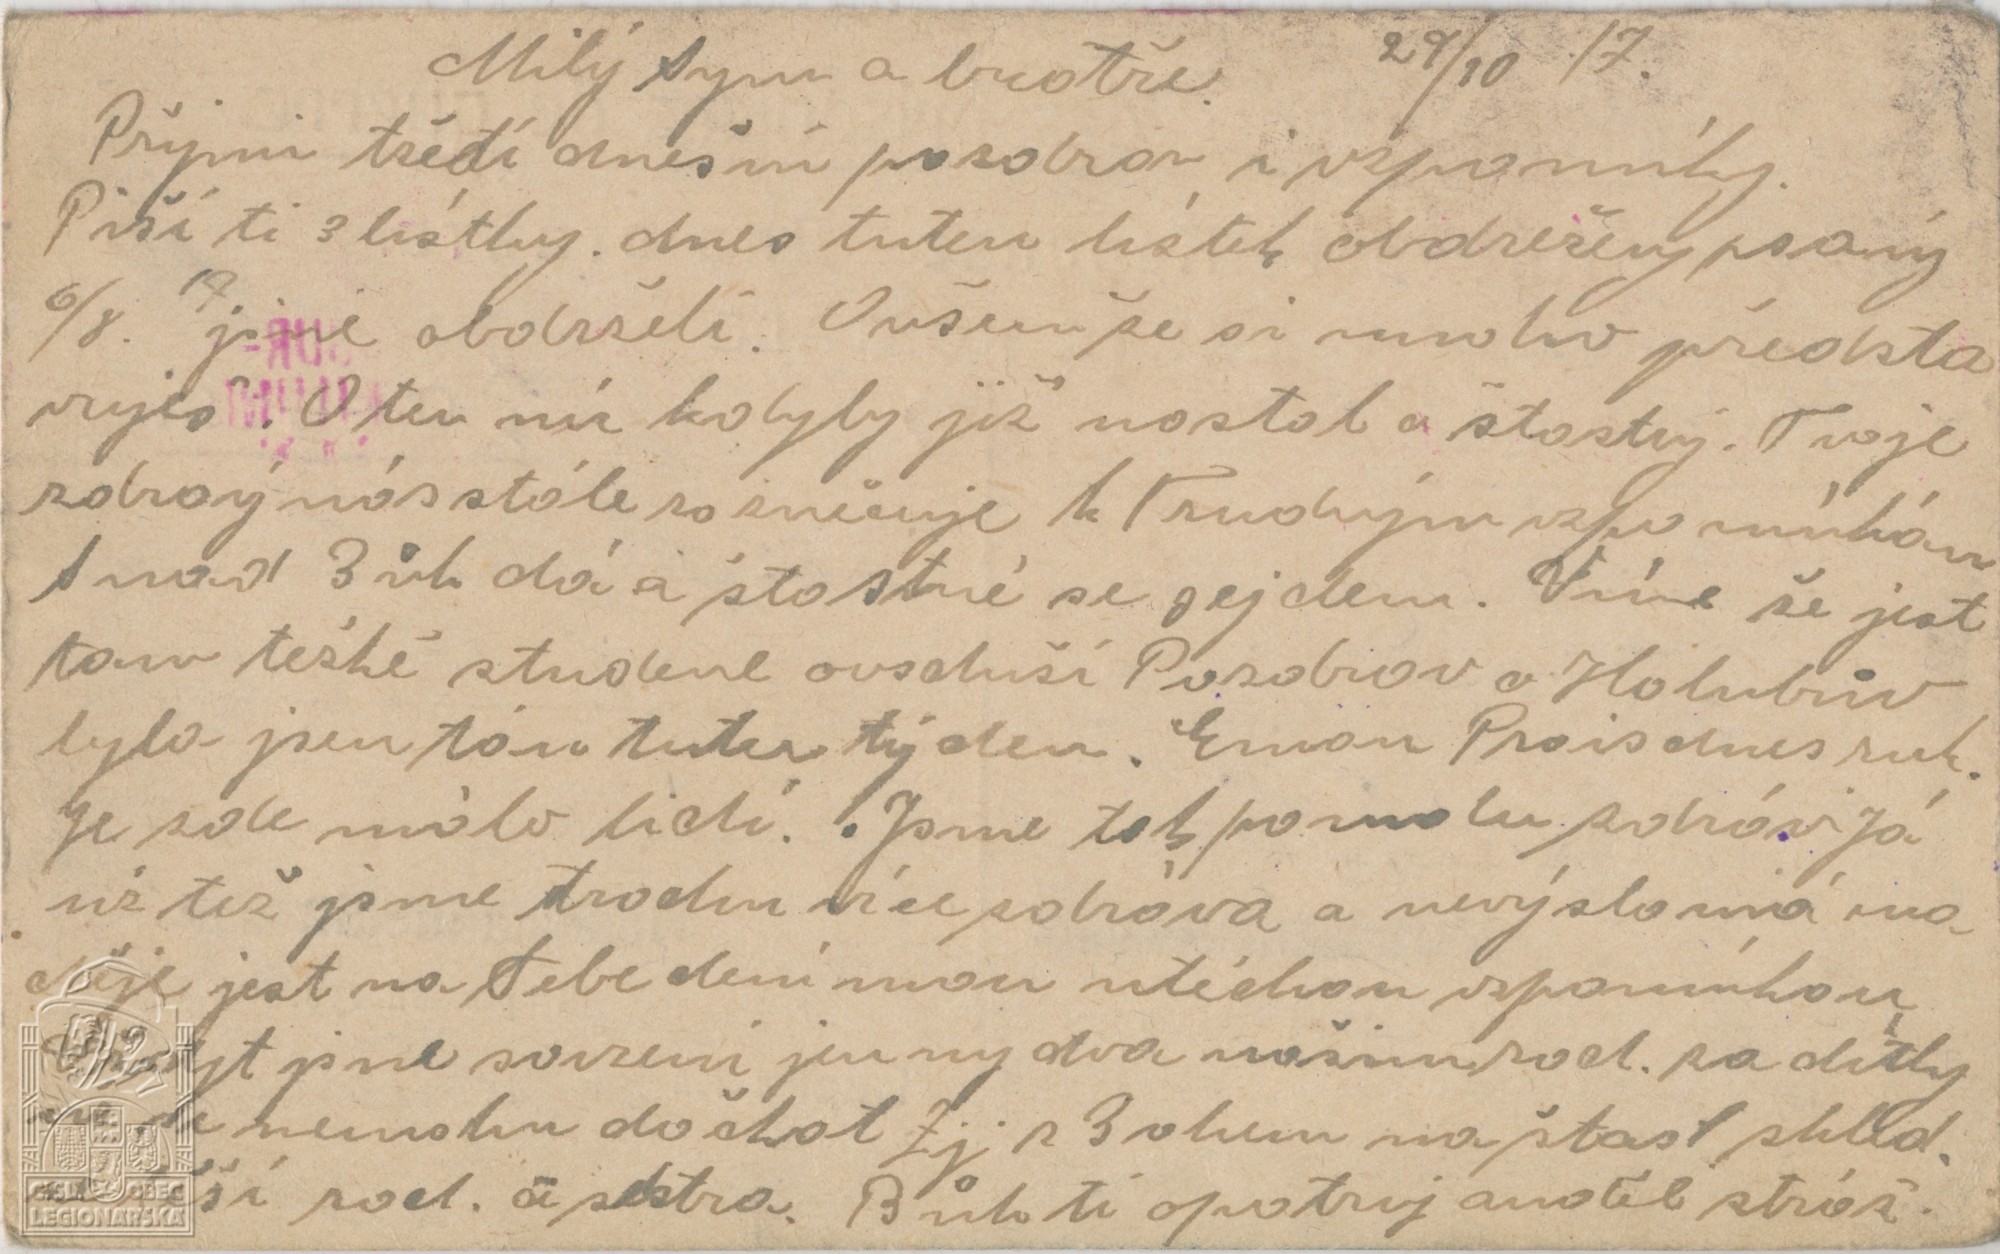 Milý synu a bratře. 29/10 17.
Přijmi třetí dnešní pozdrav i vzpomínky.
Píší ti 3 lístky. dnes tuten lístek obdrežený psaný
6/8. 17 jsme obdrželi. Ovšem že si mnoho předsta
vuješ. O ten mír kdyby již nastal a štastný. Tvoje
zdravý nás stále k Trudným vzpomínkám
snad Bůh dá a štastné se sejdem. Víme že jest
tam težké studene ovzduší Pozdrav o Holubův
byla jsem tám tuten týden. Eman Prais dnes ruk.
Je zde málo lidí. Jsme tak pomalu zdrávi Já
už též jsme trochu více zdráva a nevýslovná na
děje jest na Tebe dení mou útěchou vzpomínkou
jsme souzeni jen my dva našim rod. za dítky
nemohu dočkat Žij z Bohem na štast shled.
rod. a sestra. Bůh ti opatruj anděl stráž.
ČESKÁ OBEC
LEGIONÁŘSKÁ